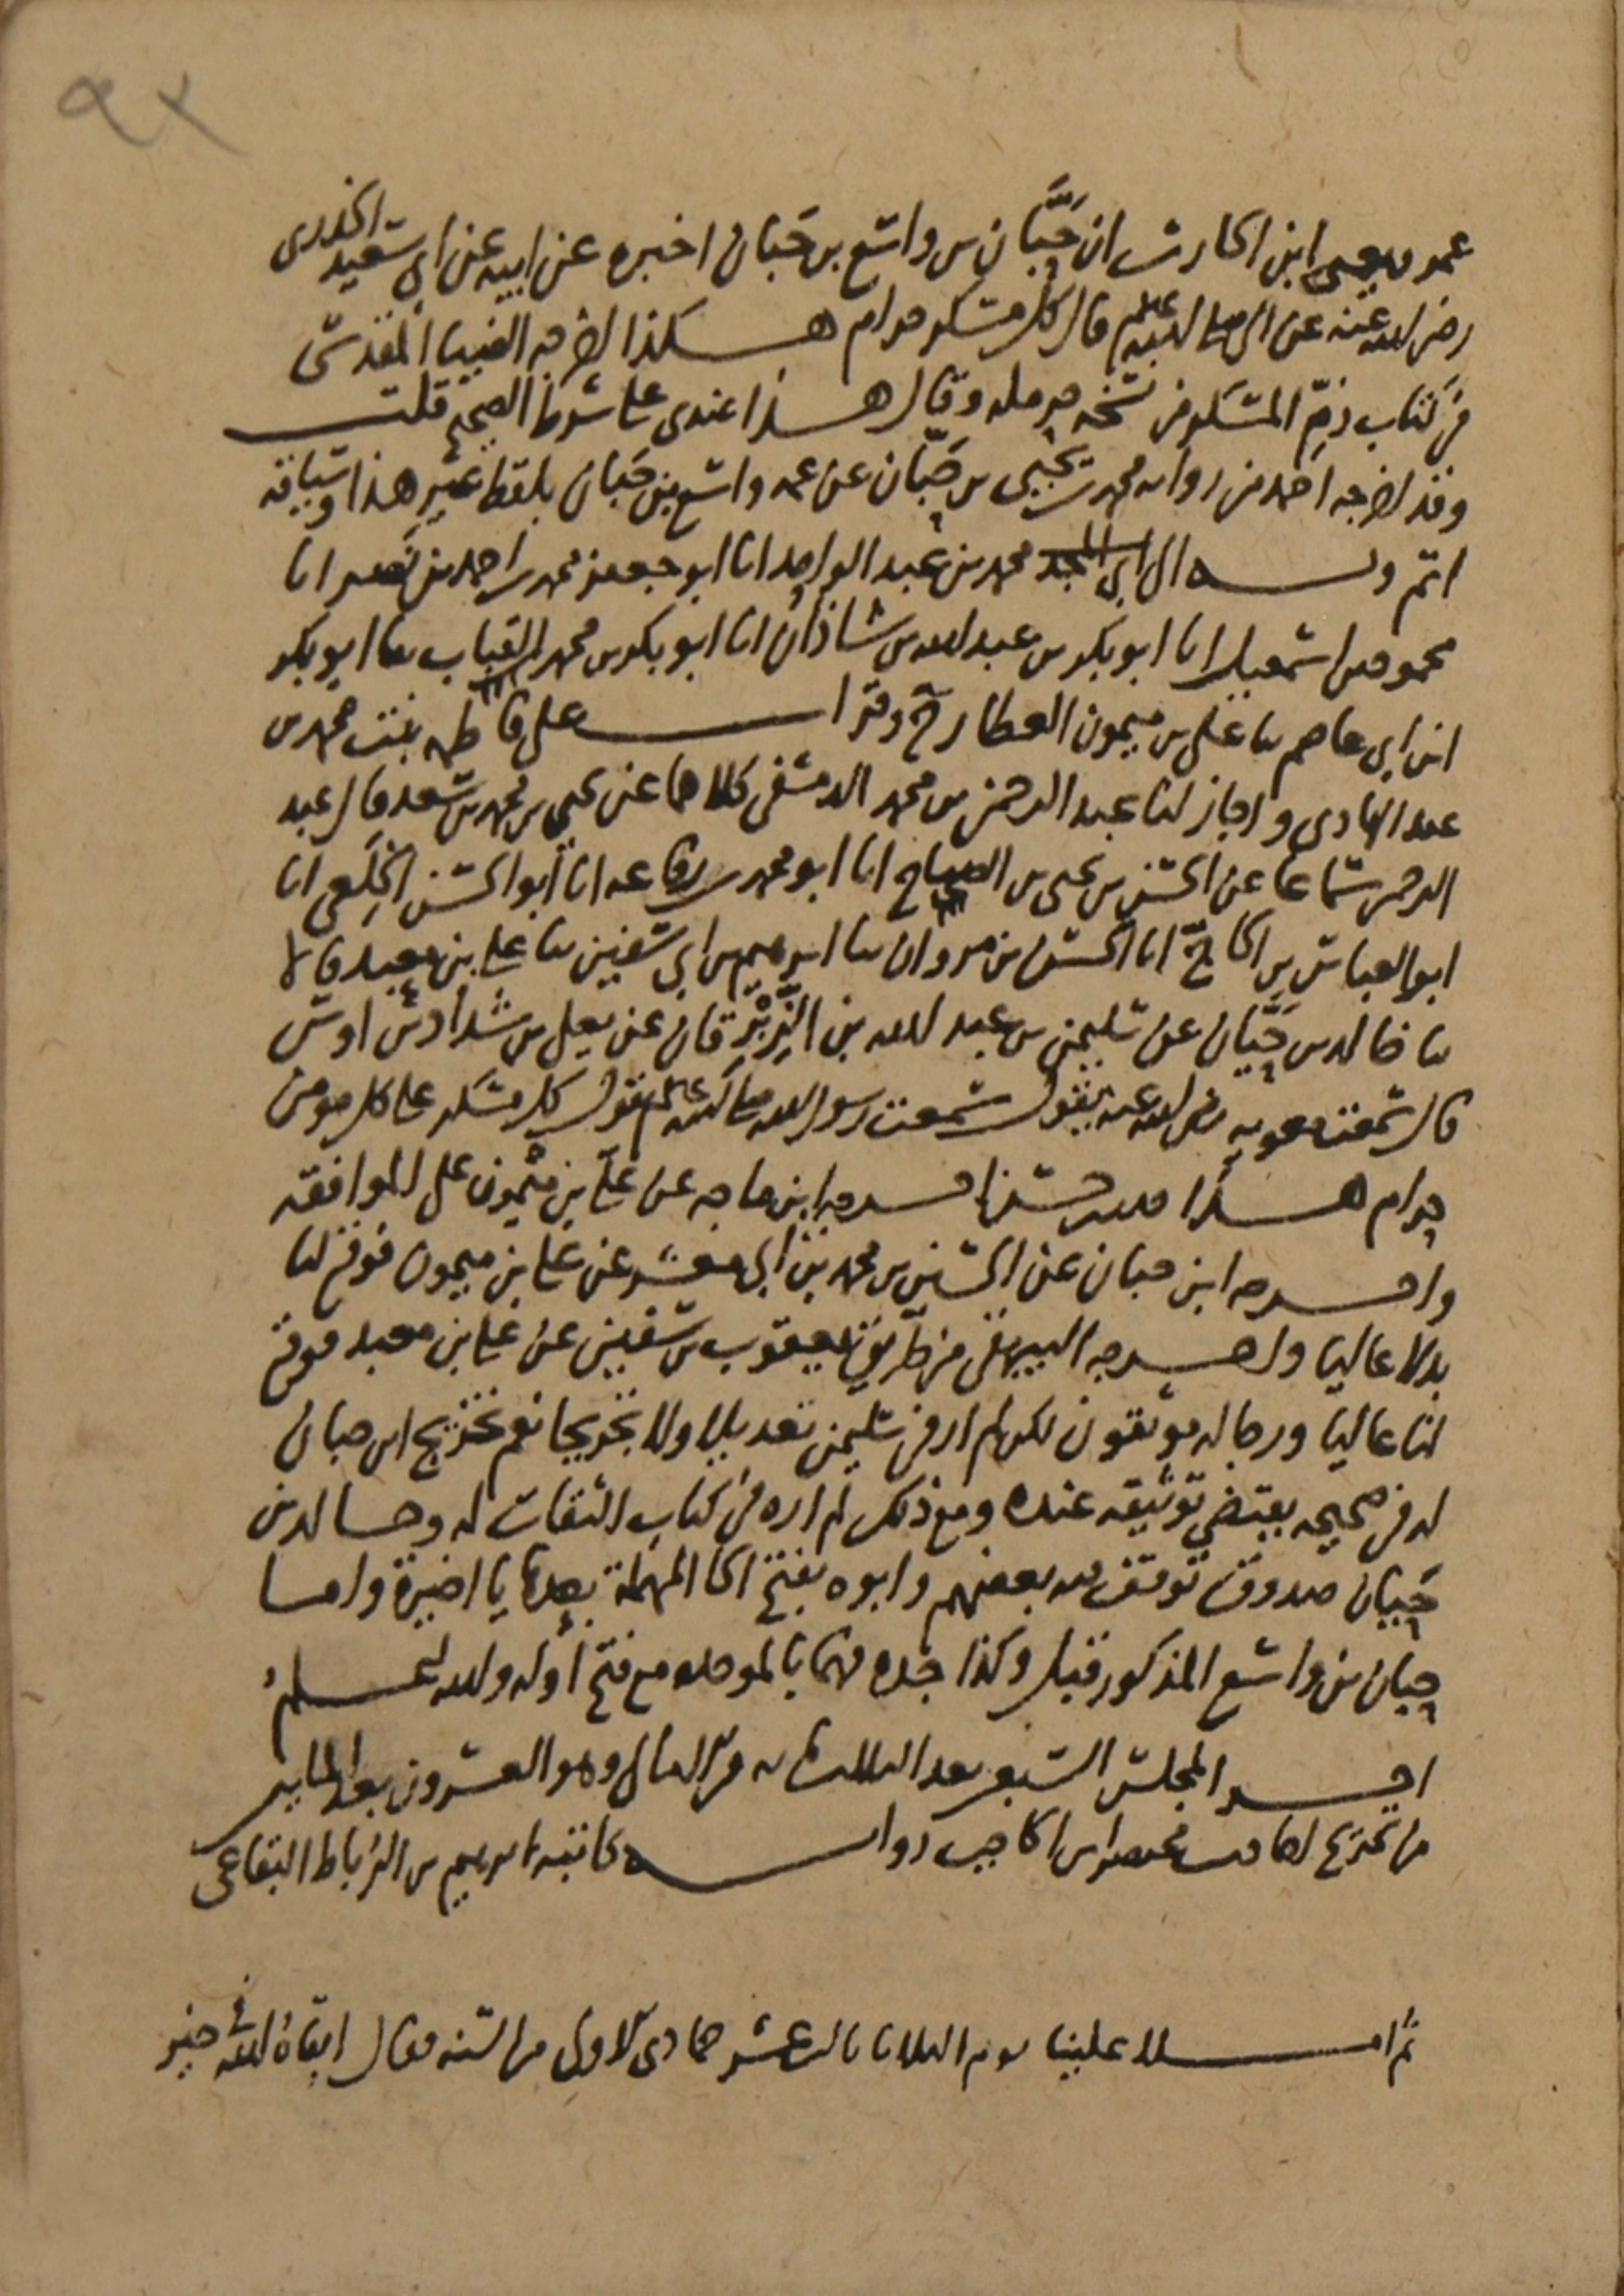 ٩٢
عمرو يعني ابن الحارث ان حَبَّان بن واسع بن حَبان اخبره عن ابيه عن ابي سعيد الخدري
رضي الله عنه عن النبي صلى الله عليه وسلم قال كل مسكر حرام هكذا اخرجه الضيا المقدسي
في كتاب ذمّ المسكر من نسخه حرمله وقال هذا عندي على شرط الصحيح قلت
وقد اخرجه احمد من روايه محمد بن يحيى بن حَبّان عن عمه واسع بن حَبان بلفظ غير هذا وسياقه
اتم وبه الى ابي المجد محمد بن عبد الواحد انا ابو جعفر محمد بن احمد بن نصر انا
محمود بن اسمعيل انا ابو بكر بن عبد الله بن شاذان انا ابو بكر بن محمد القباب ثنا ابو بكر
ابن ابي عاصم ثنا علي بن ميمون العطار ح وقرات على فاطمه بنت محمد بن
عبد الهادي واجاز لنا عبد الرحمن بن محمد الدمشقي كلاهما عن يحيى بن محمد بن سعد قال عبد
الرحمن سماعا عن الحسن بن يحيى بن الصباح انا ابو محمد بن رفاعه انا ابو الحسن الخِلَعي انا
ابو العباس بن الحاجّ انا الحسن بن مروان ثنا ابرهيم بن ابي سفين ثنا علي بن معبد قالا
ثنا خالد بن حَيَّان عن سليمن بن عبد الله بن الزِّبْرِقان عن يعلى بن شداد بن اوس
قال سمعت معويه رضي الله عنه يقول سمعت رسول الله صلى الله عليه وسلم يقول كل مسكر على كل مومن
حرام هذا حديث حسن اخرجه ابن ماجه عن علي بن ميمون على الموافقه
واخرجه ابن حبان عن الحسين بن محمد بن ابي معشر عن علي بن ميمون فوقع لنا
بدلا عاليا واخرجه البيهقي من طريق يعقوب بن سفين عن علي بن معبد فوقع
لنا عاليا ورجاله موثقون لكن لم ار في سليمن تعديلا ولا تجريحا نعم تخريج ابن حبان
له في صحيحه يقتضي توثيقه عنده ومع ذلك لم اره في كتاب الثقات له وخالد بن
حَيان صدوق توقف فيه بعضهم وابوه بفتح الحا المهملة بعدها يا اخيرة واما
حبان بن واسع المذكور قبل وكذا جده فهما بالموحده مع فتح أوله والله اعلم
اخر المجلس السبعين بعد الثلاث مايه من الامالي وهو العشرون بعد المايتين
من تخريج احاديث مختصر ابن الحاجب روايه كاتبه ابرهيم بن الرُباط البقاعي
ثم املا علينا يوم الثلاثا ثالث عشر جمادى الاول من السنه فقال ابقاه الله في خير